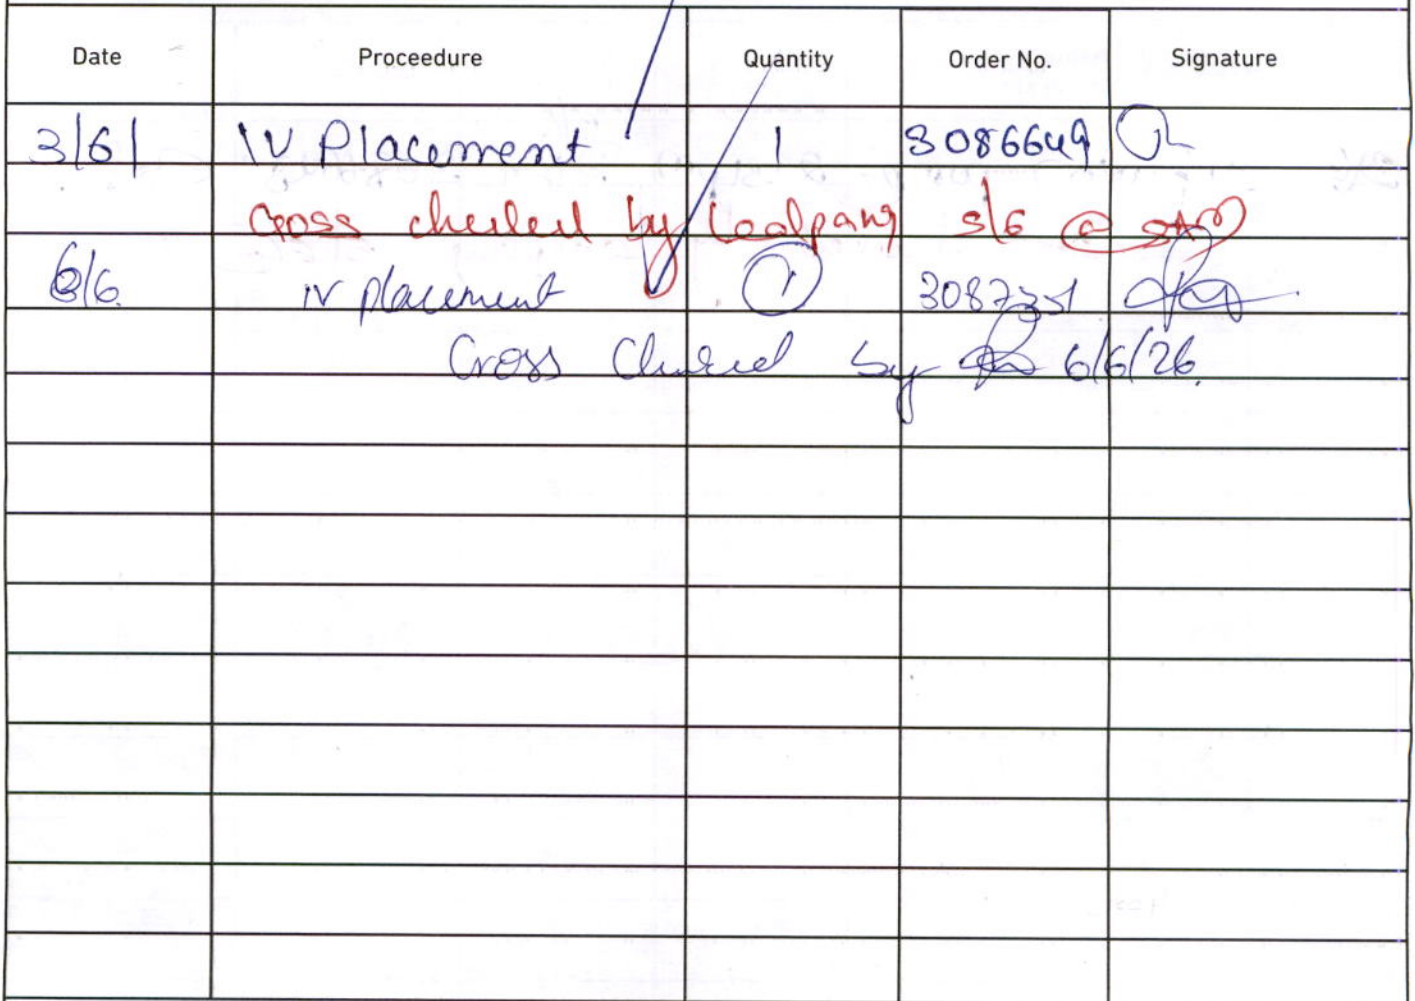 Date Proceedure Quantity Order No. Signature
3/6/ IV Placement 1 3086649
Cross checked by 5/6 @
6/6 IV placement 1
Cross Checked by 6/6/26